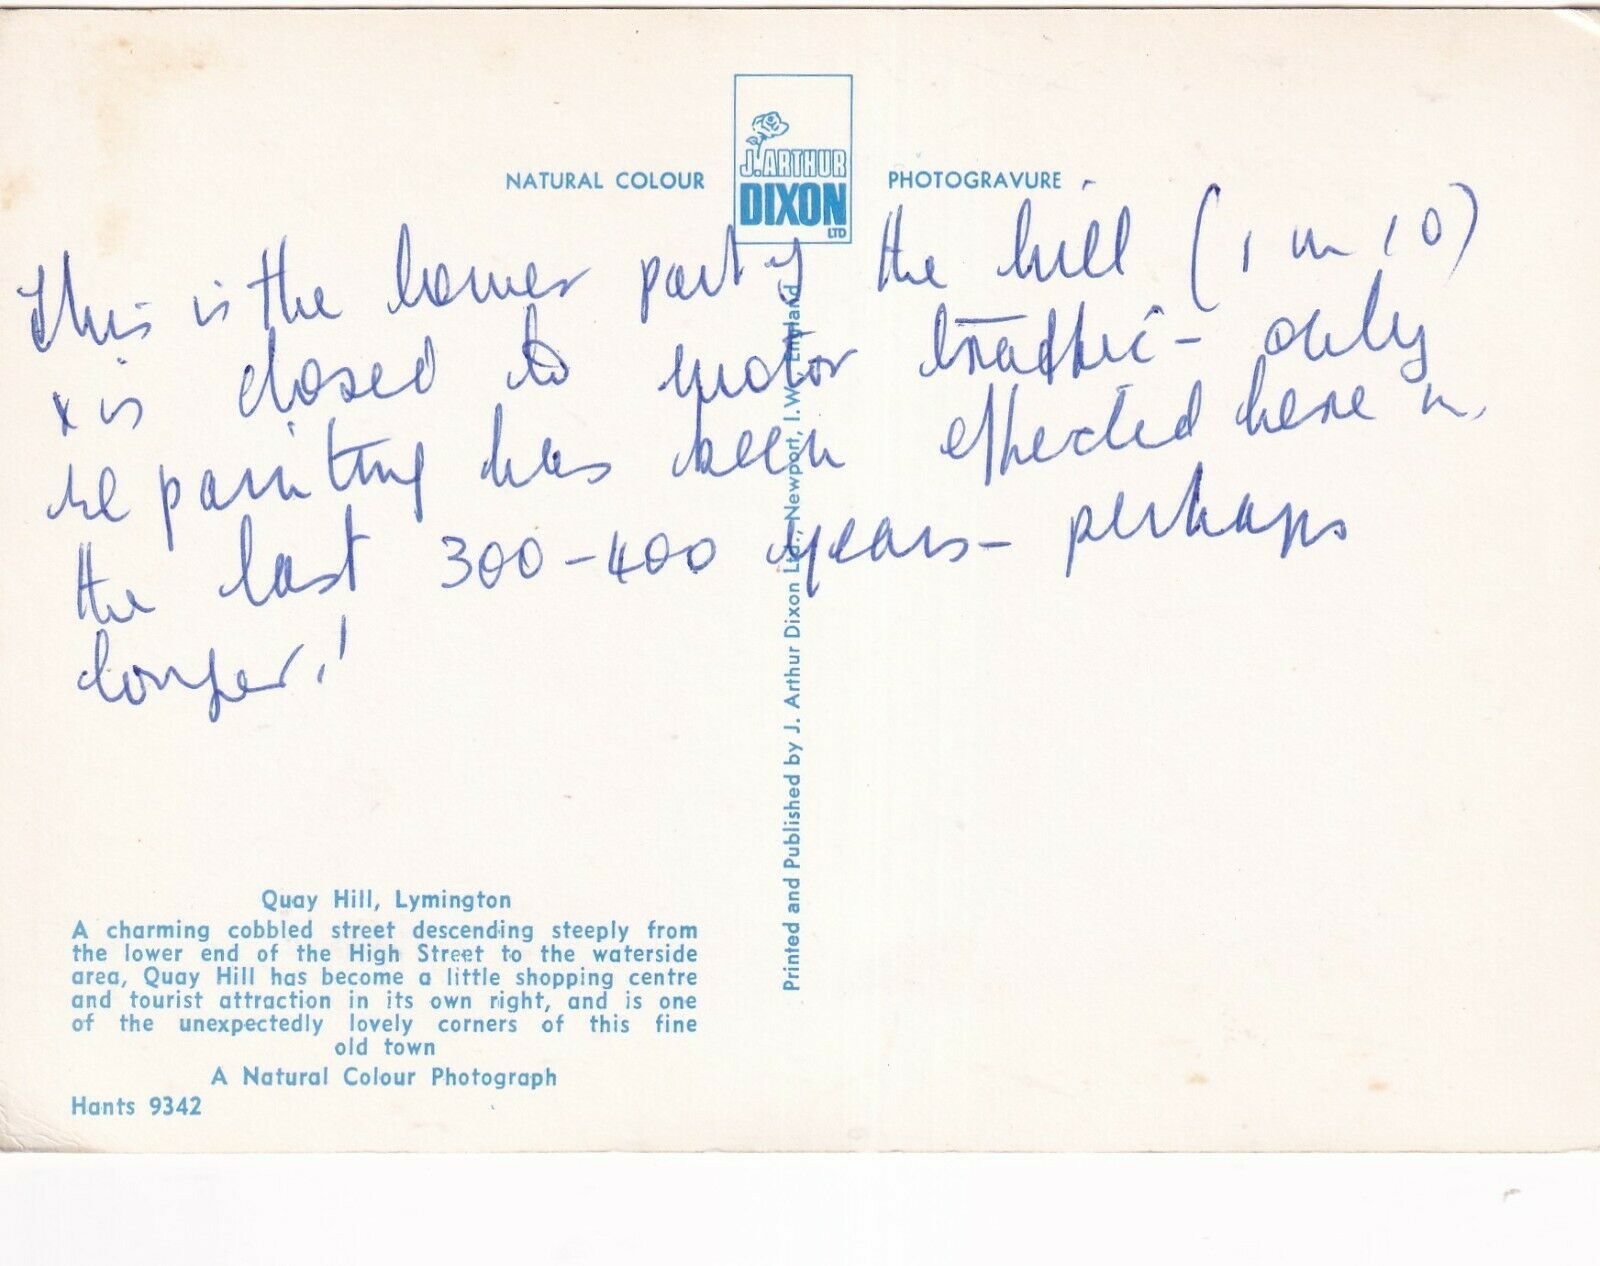 NATURAL COLOUR
J. ARTHUR
DIXON
LTD
PHOTOGRAVURE
This is the lower part of the hill (1 in 10)
& is closed to motor traffic - only
re painting has been effected here in
the last 300-400 years - perhaps
longer!
Printed and Published by J. Arthur Dixon Ltd., Newport, I.W., England
Quay Hill, Lymington
A charming cobbled street descending steeply from
the lower end of the High Street to the waterside
area, Quay Hill has become a little shopping centre
and tourist attraction in its own right, and is one
of the unexpectedly lovely corners of this fine
old town
A Natural Colour Photograph
Hants 9342